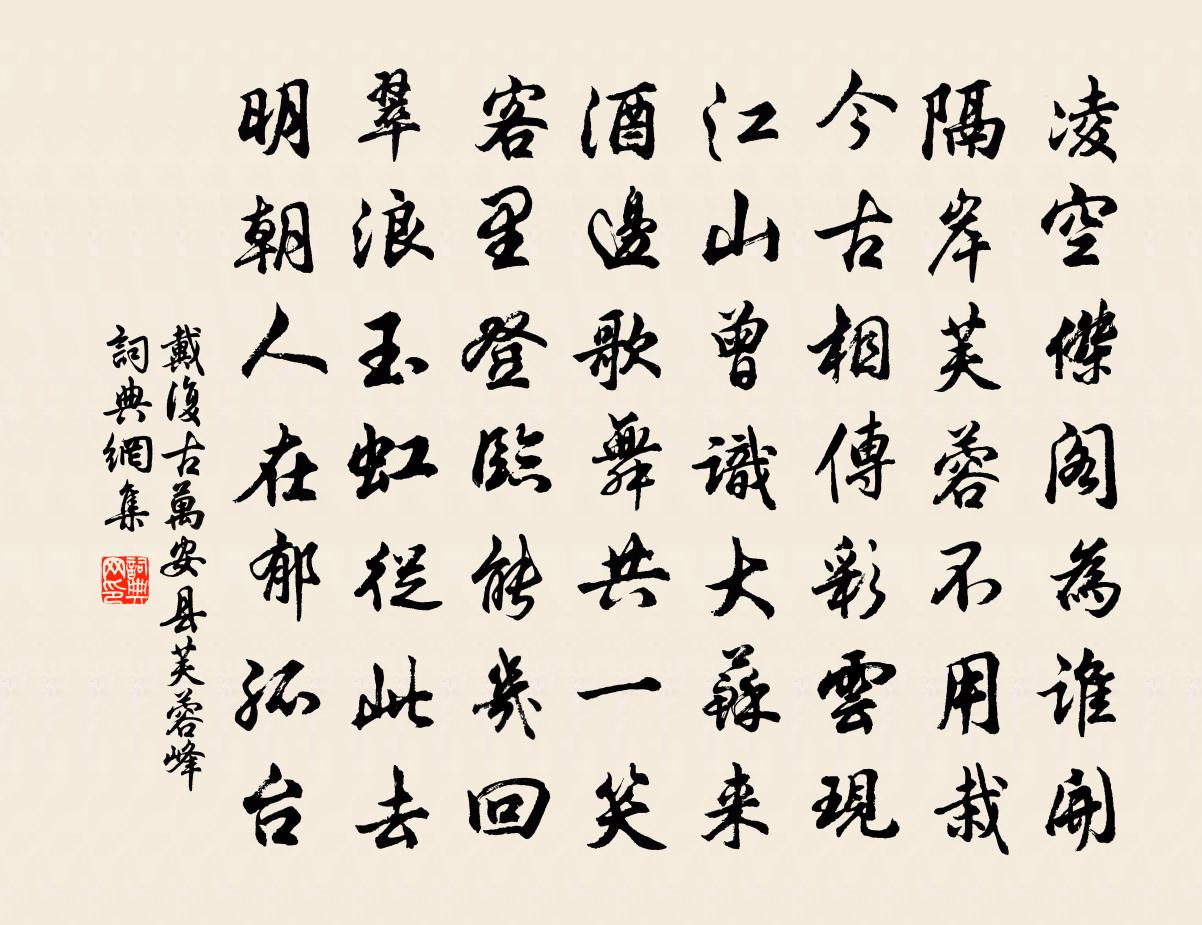 凌空傑阁為誰開
隔岸芙蓉不用栽
今古相傳彩雲現
江山曾識大蘇来
酒邊歌舞共一笑
客里登臨能幾回
翠浪玉虹從此去
明朝人在郁孤台
戴復古萬安县芙蓉峰
詞典網集
詞典网印